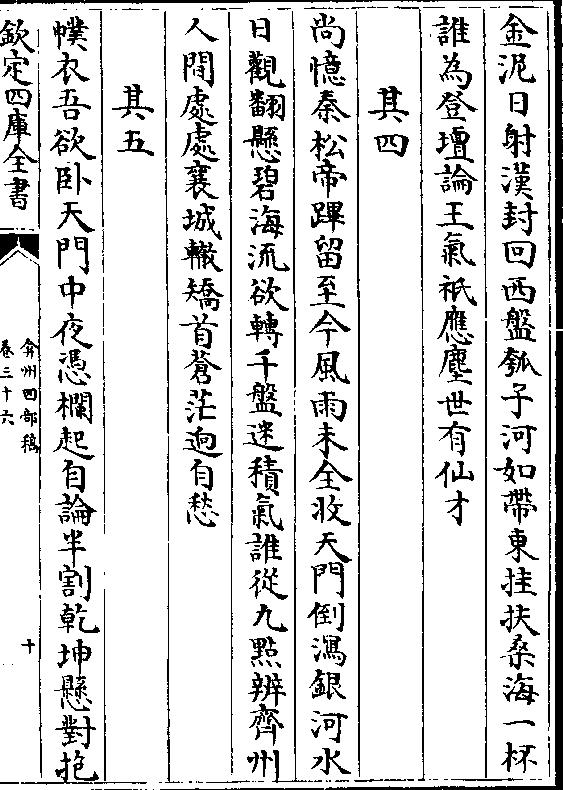 金泥日射漢封回西盤瓠子河如帶東挂扶桑海一杯
誰為登壇論王氣祇應塵世有仙才
其四
尚憶秦松帝蹕留至今風雨未全收天門倒瀉銀河水
日觀翻懸碧海流欲轉千盤迷積氣誰從九點辨齊州
人間處處襄城轍矯首蒼茫逈自愁
其五
幞衣吾欲卧天門中夜憑欄起自論半割乾坤懸對抱
欽定四庫全書
弇州四部稿
卷三十六
十